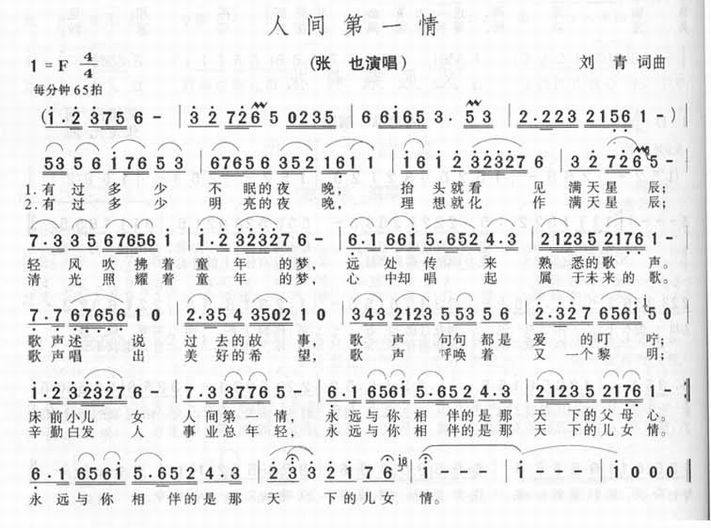 人间第一情
1=F 4/4 (张 也演唱) 刘 青 词曲
每分钟65拍
(1.2 3756 - | 32 726 5 0235 | 6 6165 3. 53 | 2.223 2156 1 - )
53 56 1765 3 | 67656 352 161 1 | 1612 32327 6 | 32 726 5 -
1.有过多少 不眠的夜晚, 抬头就看 见满天星辰;
2.有过多少 明亮的夜晚, 理想就化 作满天星辰;
7.3 35 67656 1 | 1.2 32327 6 - | 6.1 661 5.652 4.3 | 21235 2176 1 -
轻风吹拂着童年的梦, 远处传来熟悉的歌声。
清光照耀着童年的梦, 心中却唱起属于未来的歌。
7.7 67656 1 0 | 2.354 3502 1 0 | 343 2123 553 56 | 2.327 6561 5 0
歌声述说 过去的故事, 歌声句句都是爱的叮咛;
歌声唱出 美好的希望, 歌声呼唤着又一个黎明;
1.2 32327 6 - | 7.3 3776 5 - | 6.1 6561 5.652 4.3 | 21235 2176 1 - :|
床前小儿女 人间第一情, 永远与你相伴的是那天下的父母心。
辛勤白发人 事业总年轻, 永远与你相伴的是那天下的儿女情。
6.1 6561 5.652 4.3 | 2 3 3 2 2176 | 1 - - - | 1 - 1 - | 1 0 0 0 ‖
永远与你相伴的是那天下的儿女情。